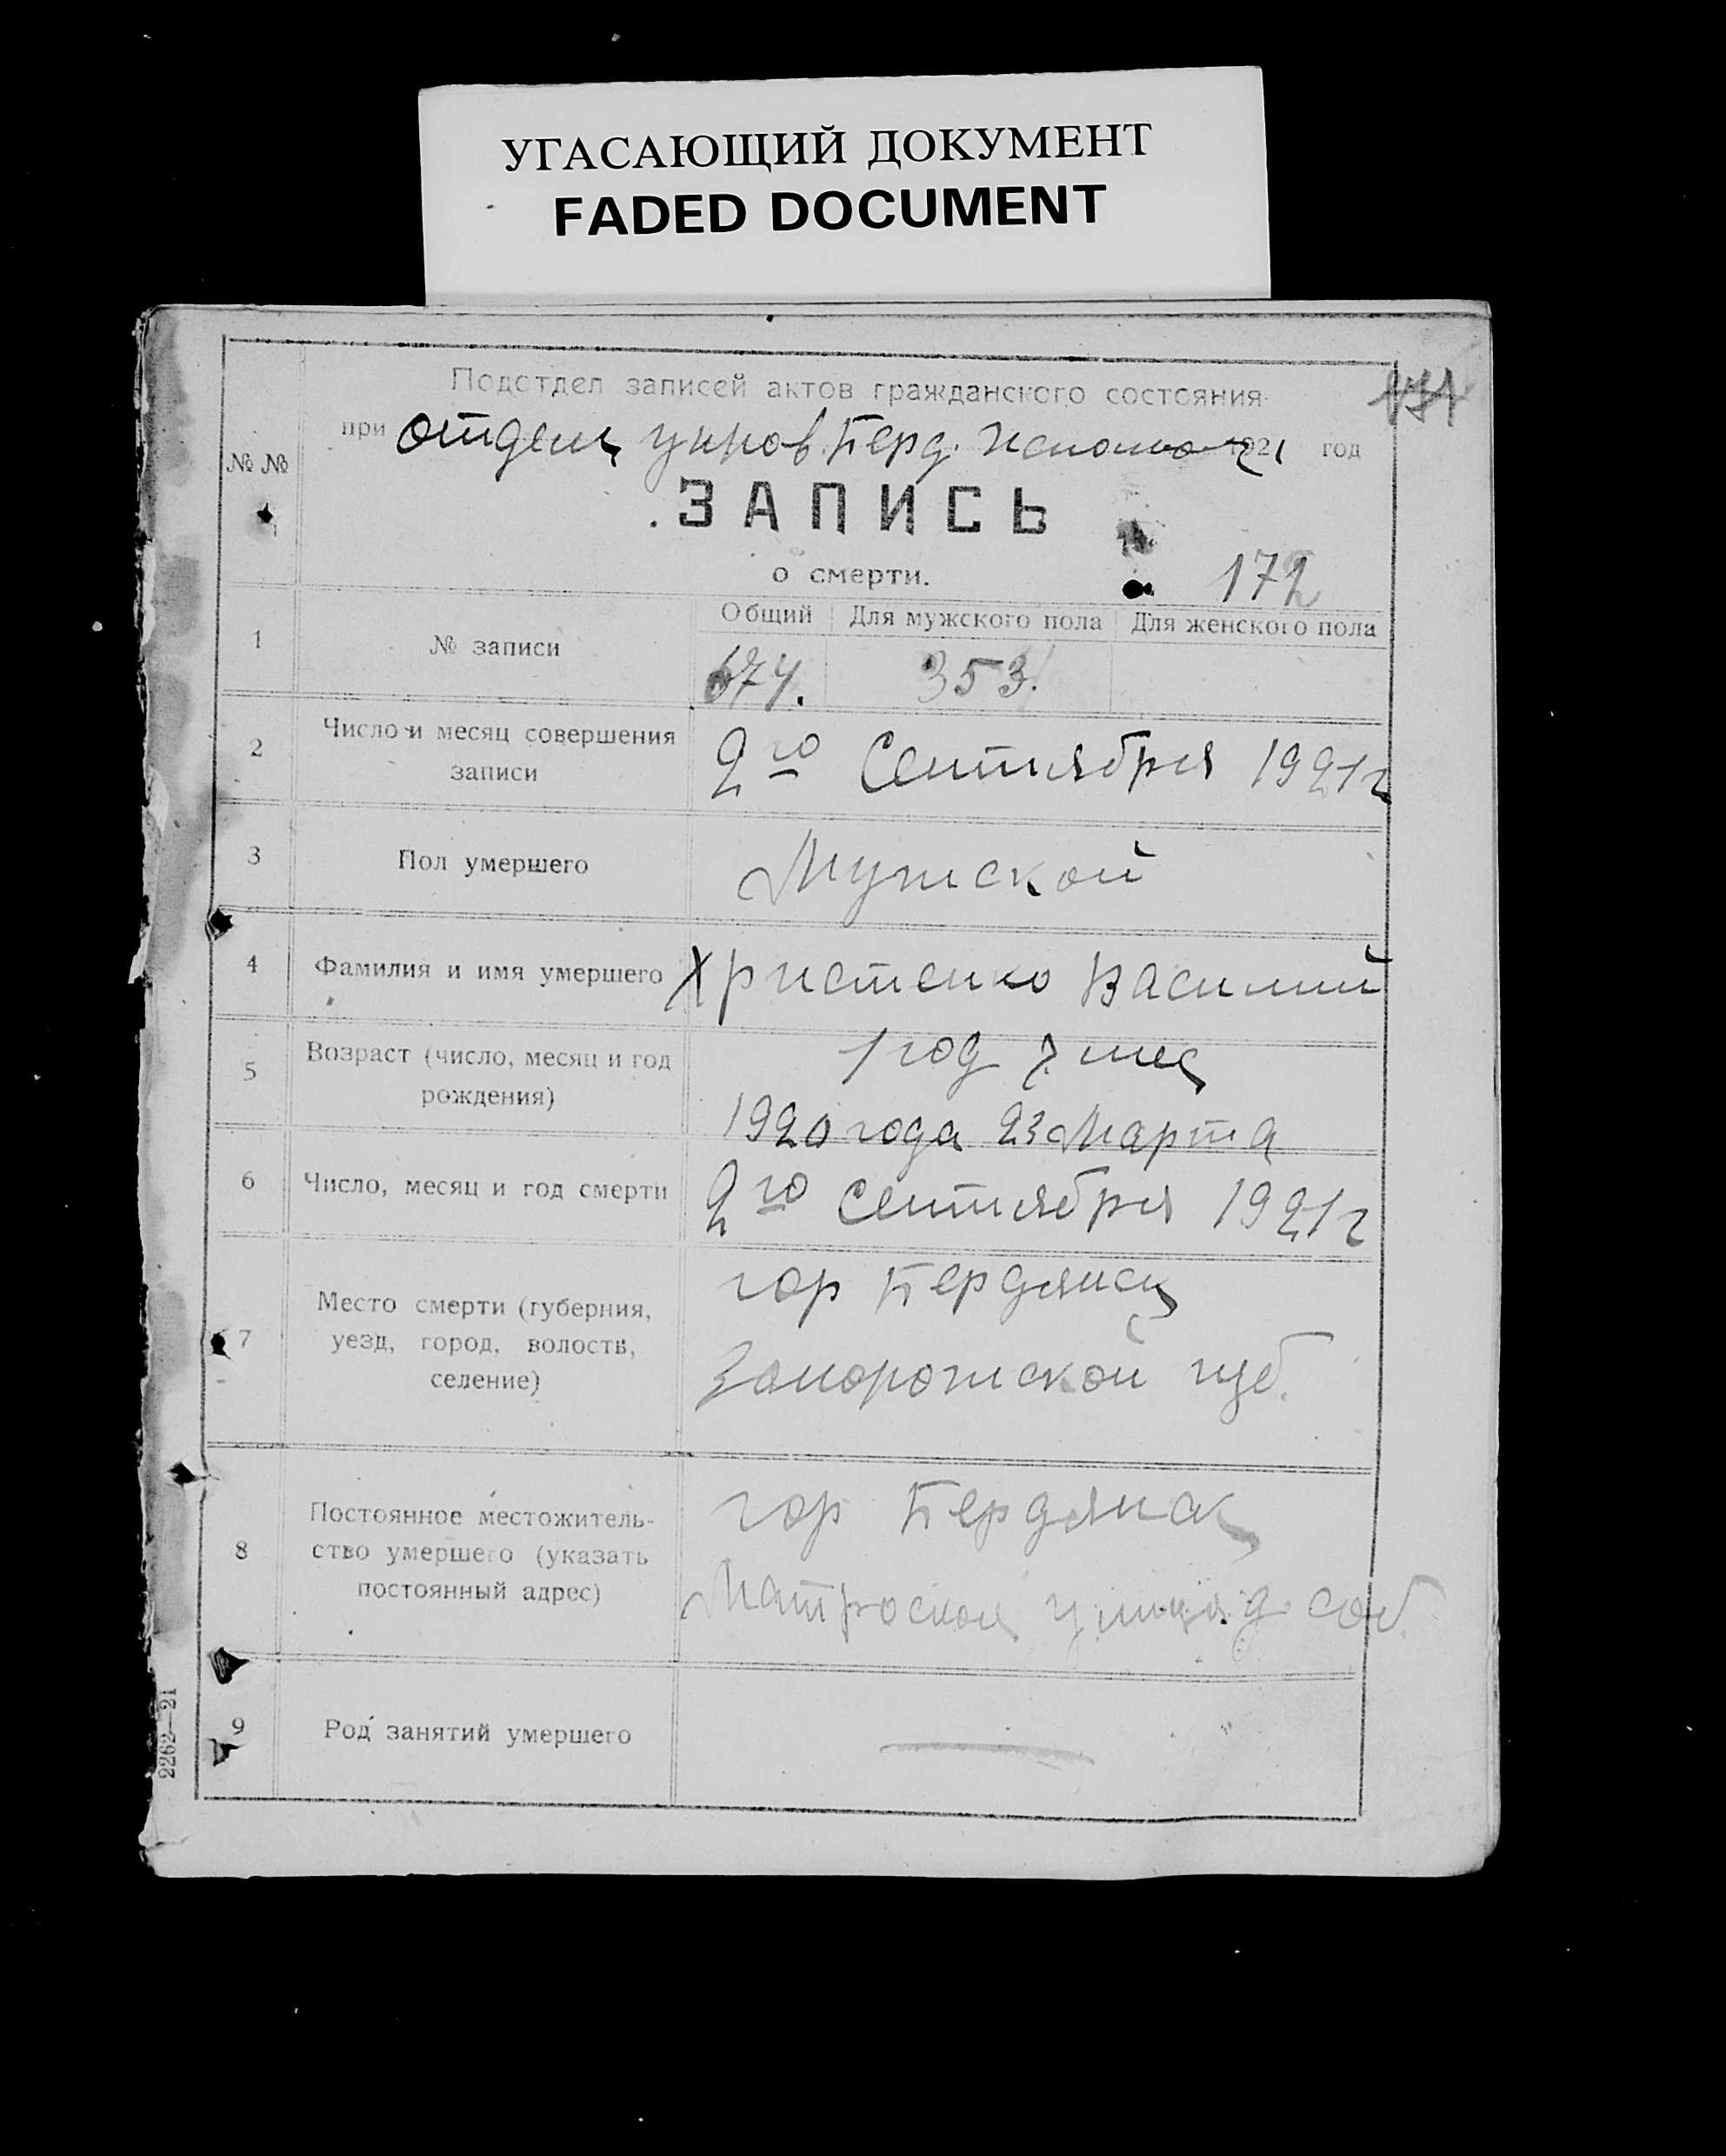 УГАСАЮЩИЙ ДОКУМЕНТ
FADED DOCUMENT
Подотдел записей актов гражданского состояния
при отделе управ. Берд. 1921 год
№ №
ЗАПИСЬ
о смерти.
172
Общий Для мужского пола Для женского пола
1 № записи 674. 353.
2 Число и месяц совершения
записи
2го Сентября 1921г
3 Пол умершего Мужской
4 Фамилия и имя умершего Христенко Василий
5 Возраст (число, месяц и год
рождения)
1 год 7 мес
1920 года 23 Марта
6 Число, месяц и год смерти 2го Сентября 1921г
7 Место смерти (губерния,
уезд, город, волость,
селение)
гор Бердянск
Запорожской губ.
8 Постоянное местожитель-
ство умершего (указать
постоянный адрес)
гор Бердянск
Матроская улица д соб.
9 Род занятий умершего
2262—21